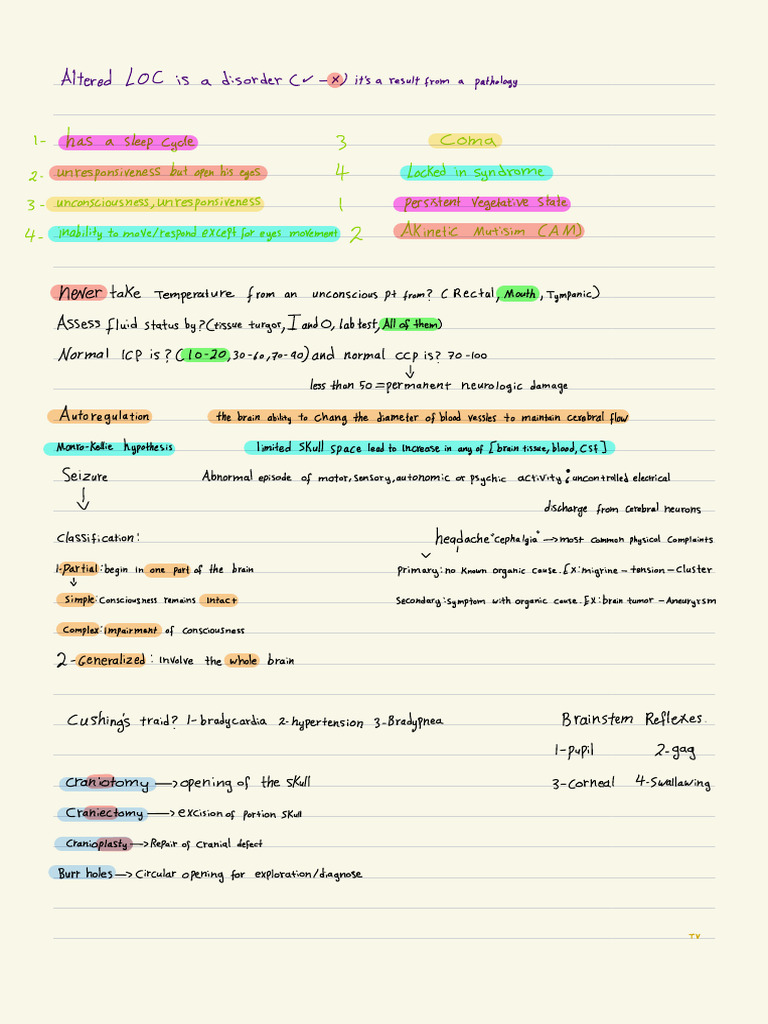 Altered LOC is a disorder (✓ - ×) it's a result from a pathology
1- has a sleep cycle 3 Coma
2- unresponsiveness but open his eyes 4 Locked in syndrome
3- unconsciousness, unresponsiveness 1 Persistent Vegetative State
4- inability to move/respond except for eyes movement 2 AKinetic Mutisim (AM)
never take Temperature from an unconscious pt from? (Rectal, Mouth, Tympanic)
Assess fluid status by? (tissue turgor, I and O, lab test, All of them)
Normal ICP is? (10-20, 30-60, 70-90) and normal CCP is? 70-100
↓
less than 50 = permanent neurologic damage
Autoregulation the brain ability to chang the diameter of blood vessles to maintain cerebral flow
Monro-Kellie hypothesis limited skull space lead to increase in any of [brain tissue, blood, CSF]
Seizure Abnormal episode of motor, sensory, autonomic or psychic activity: uncontrolled electrical
↓ discharge from cerebral neurons
Classification: headache "cephalgia" → most common physical complaints
1-Partial: begin in one part of the brain Primary: no known organic cause. Ex: migrine - tension - Cluster
↓
Simple: Consciousness remains intact Secondary: symptom with organic cause. Ex: brain tumor - Aneurysm
Complex: impairment of consciousness
2-Generalized: involve the whole brain
Cushing's traid? 1-bradycardia 2-hypertension 3-Bradypnea Brainstem Reflexes.
1-pupil 2-gag
Craniotomy → opening of the skull 3-Corneal 4-Swallawing
Craniectomy → excision of portion skull
Cranioplasty → Repair of Cranial defect
Burr holes → Circular opening for exploration/diagnose